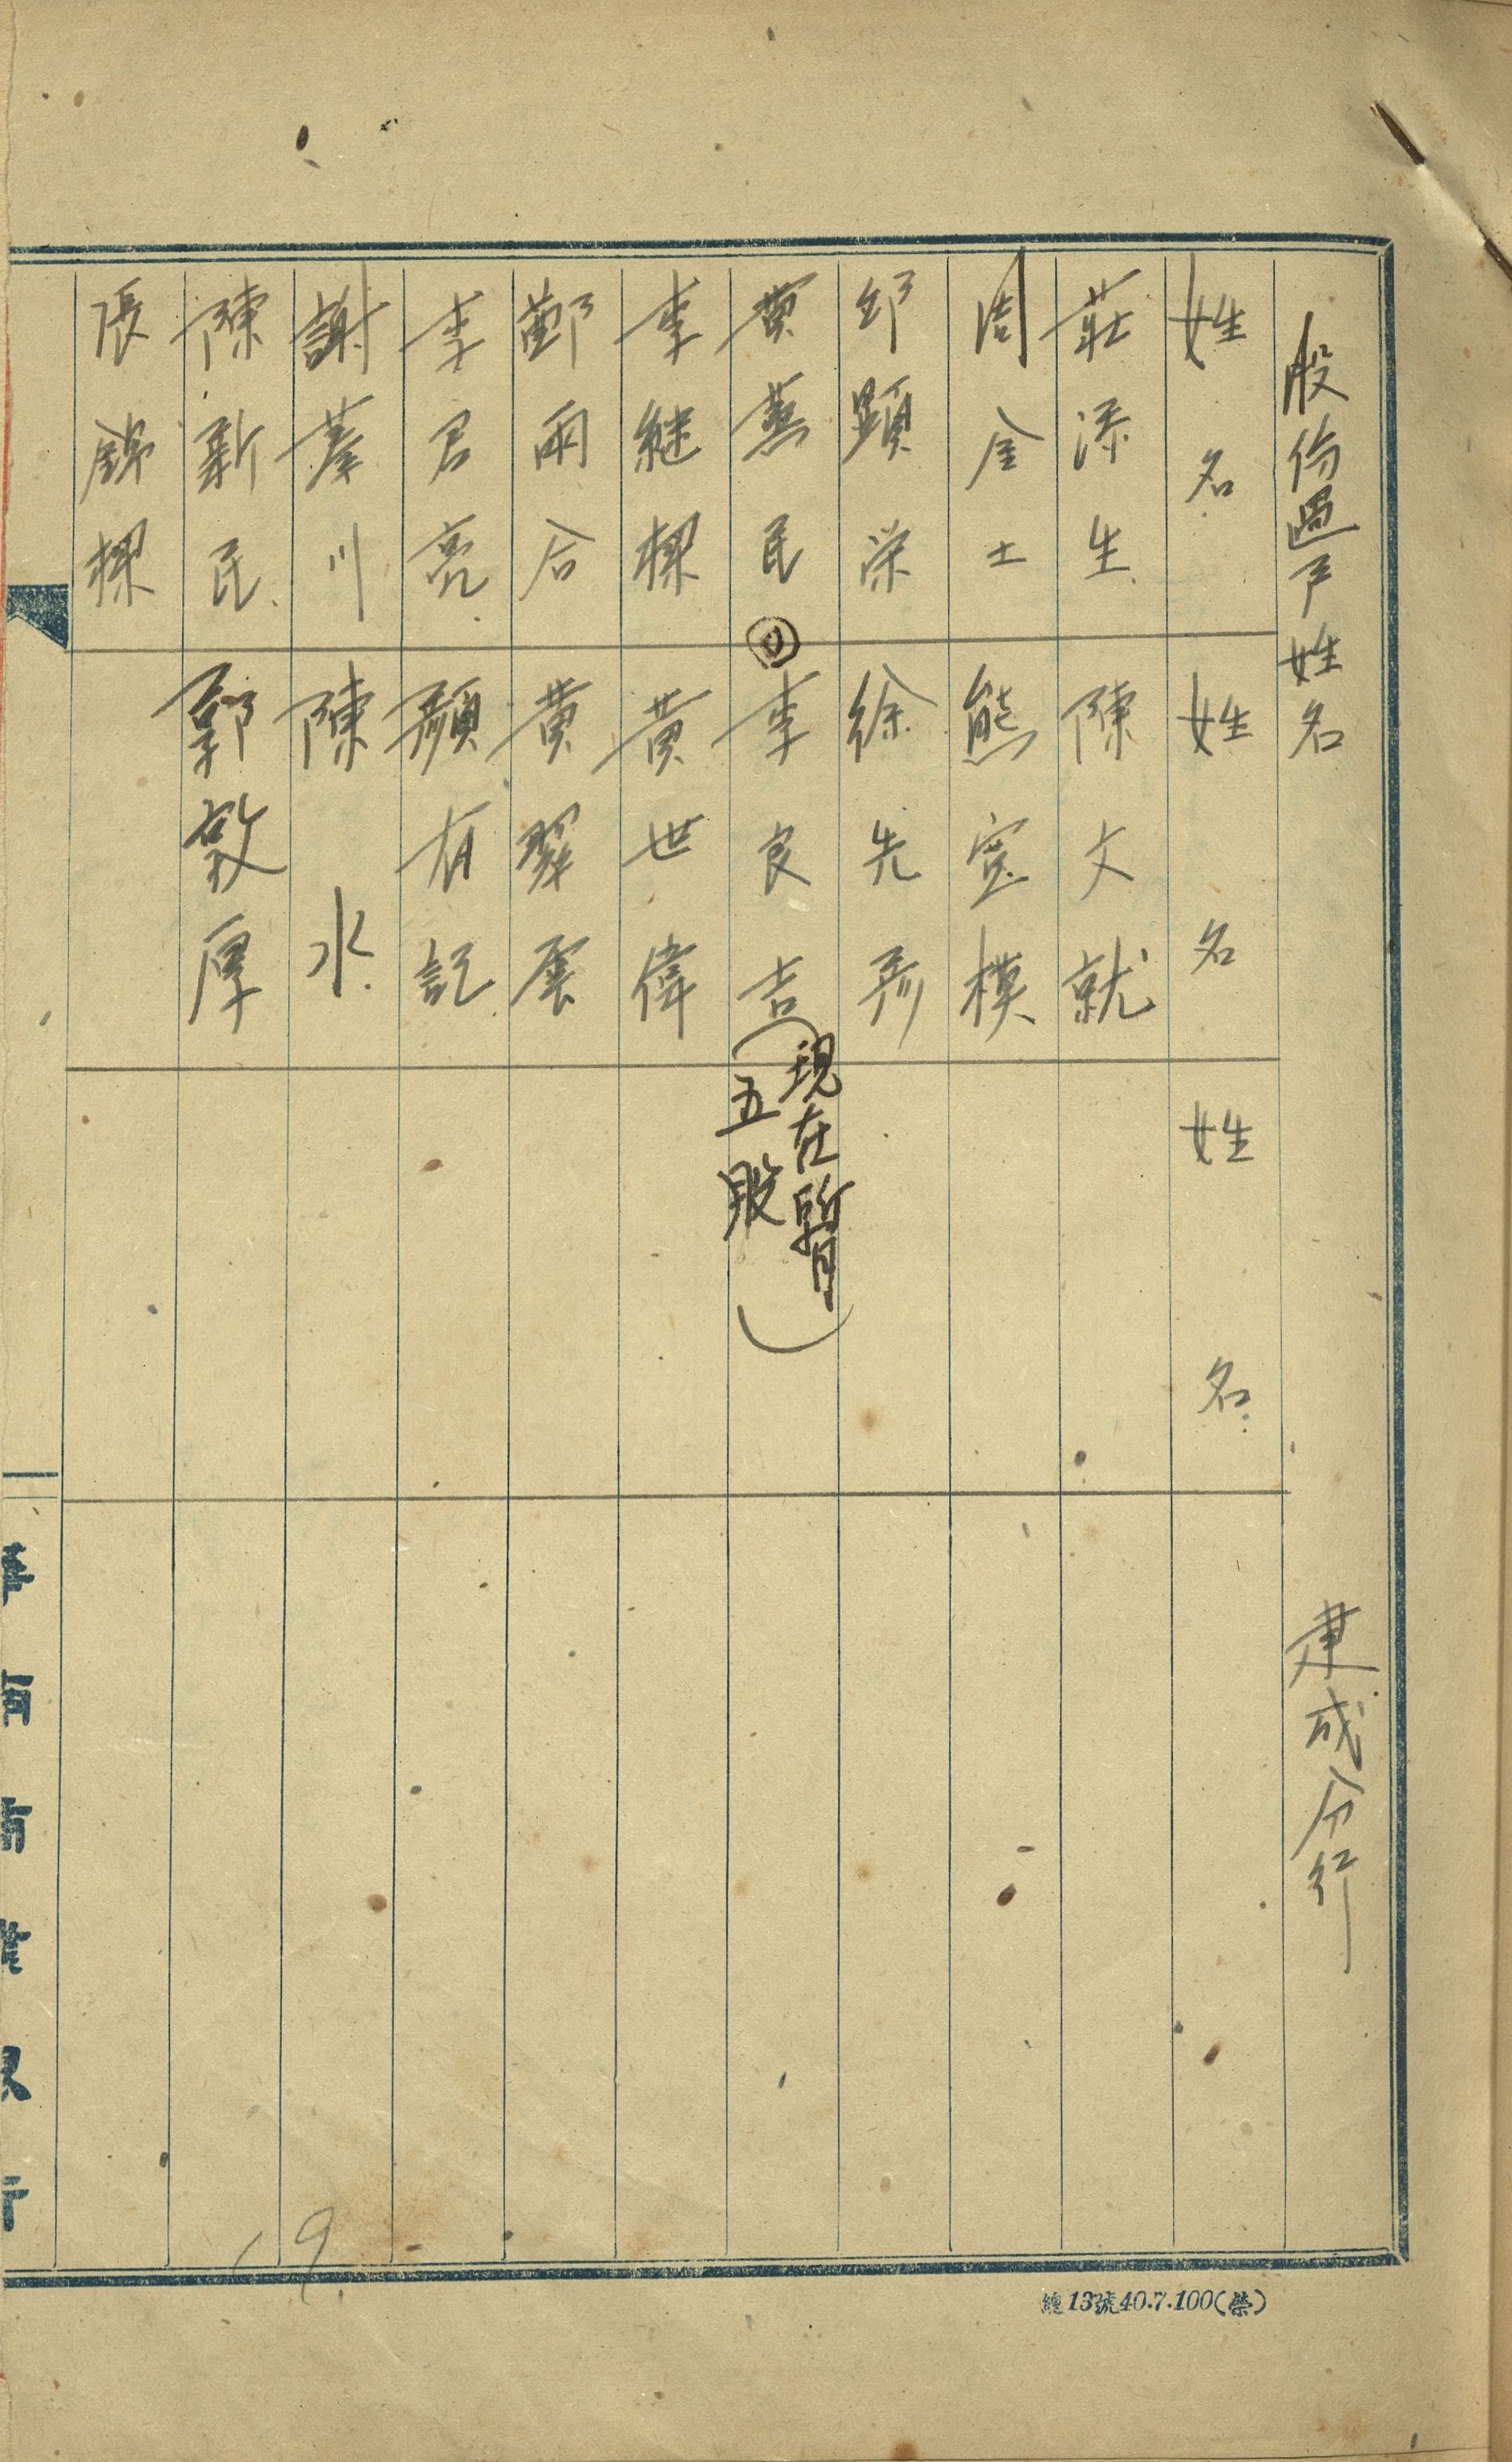 股份過戶姓名 建成分行
姓名 姓名 姓名
莊添生 陳文就
周金土 熊寔模
邱顯榮 徐先彥
黃燕民 李良吉(現在所有五股)
李継樑 黃世偉
鄞雨合 黃翠雲
李君亮 顏有記
謝蓁川 陳水
陳新民 郭敦厚
張錦樑
華南商業銀行
19
總13號40.7.100(榮)